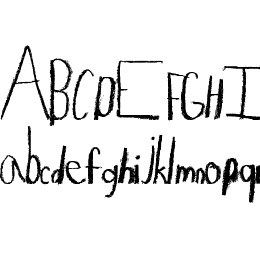 ABCDEFGHI
abcdefghijklmnopqr